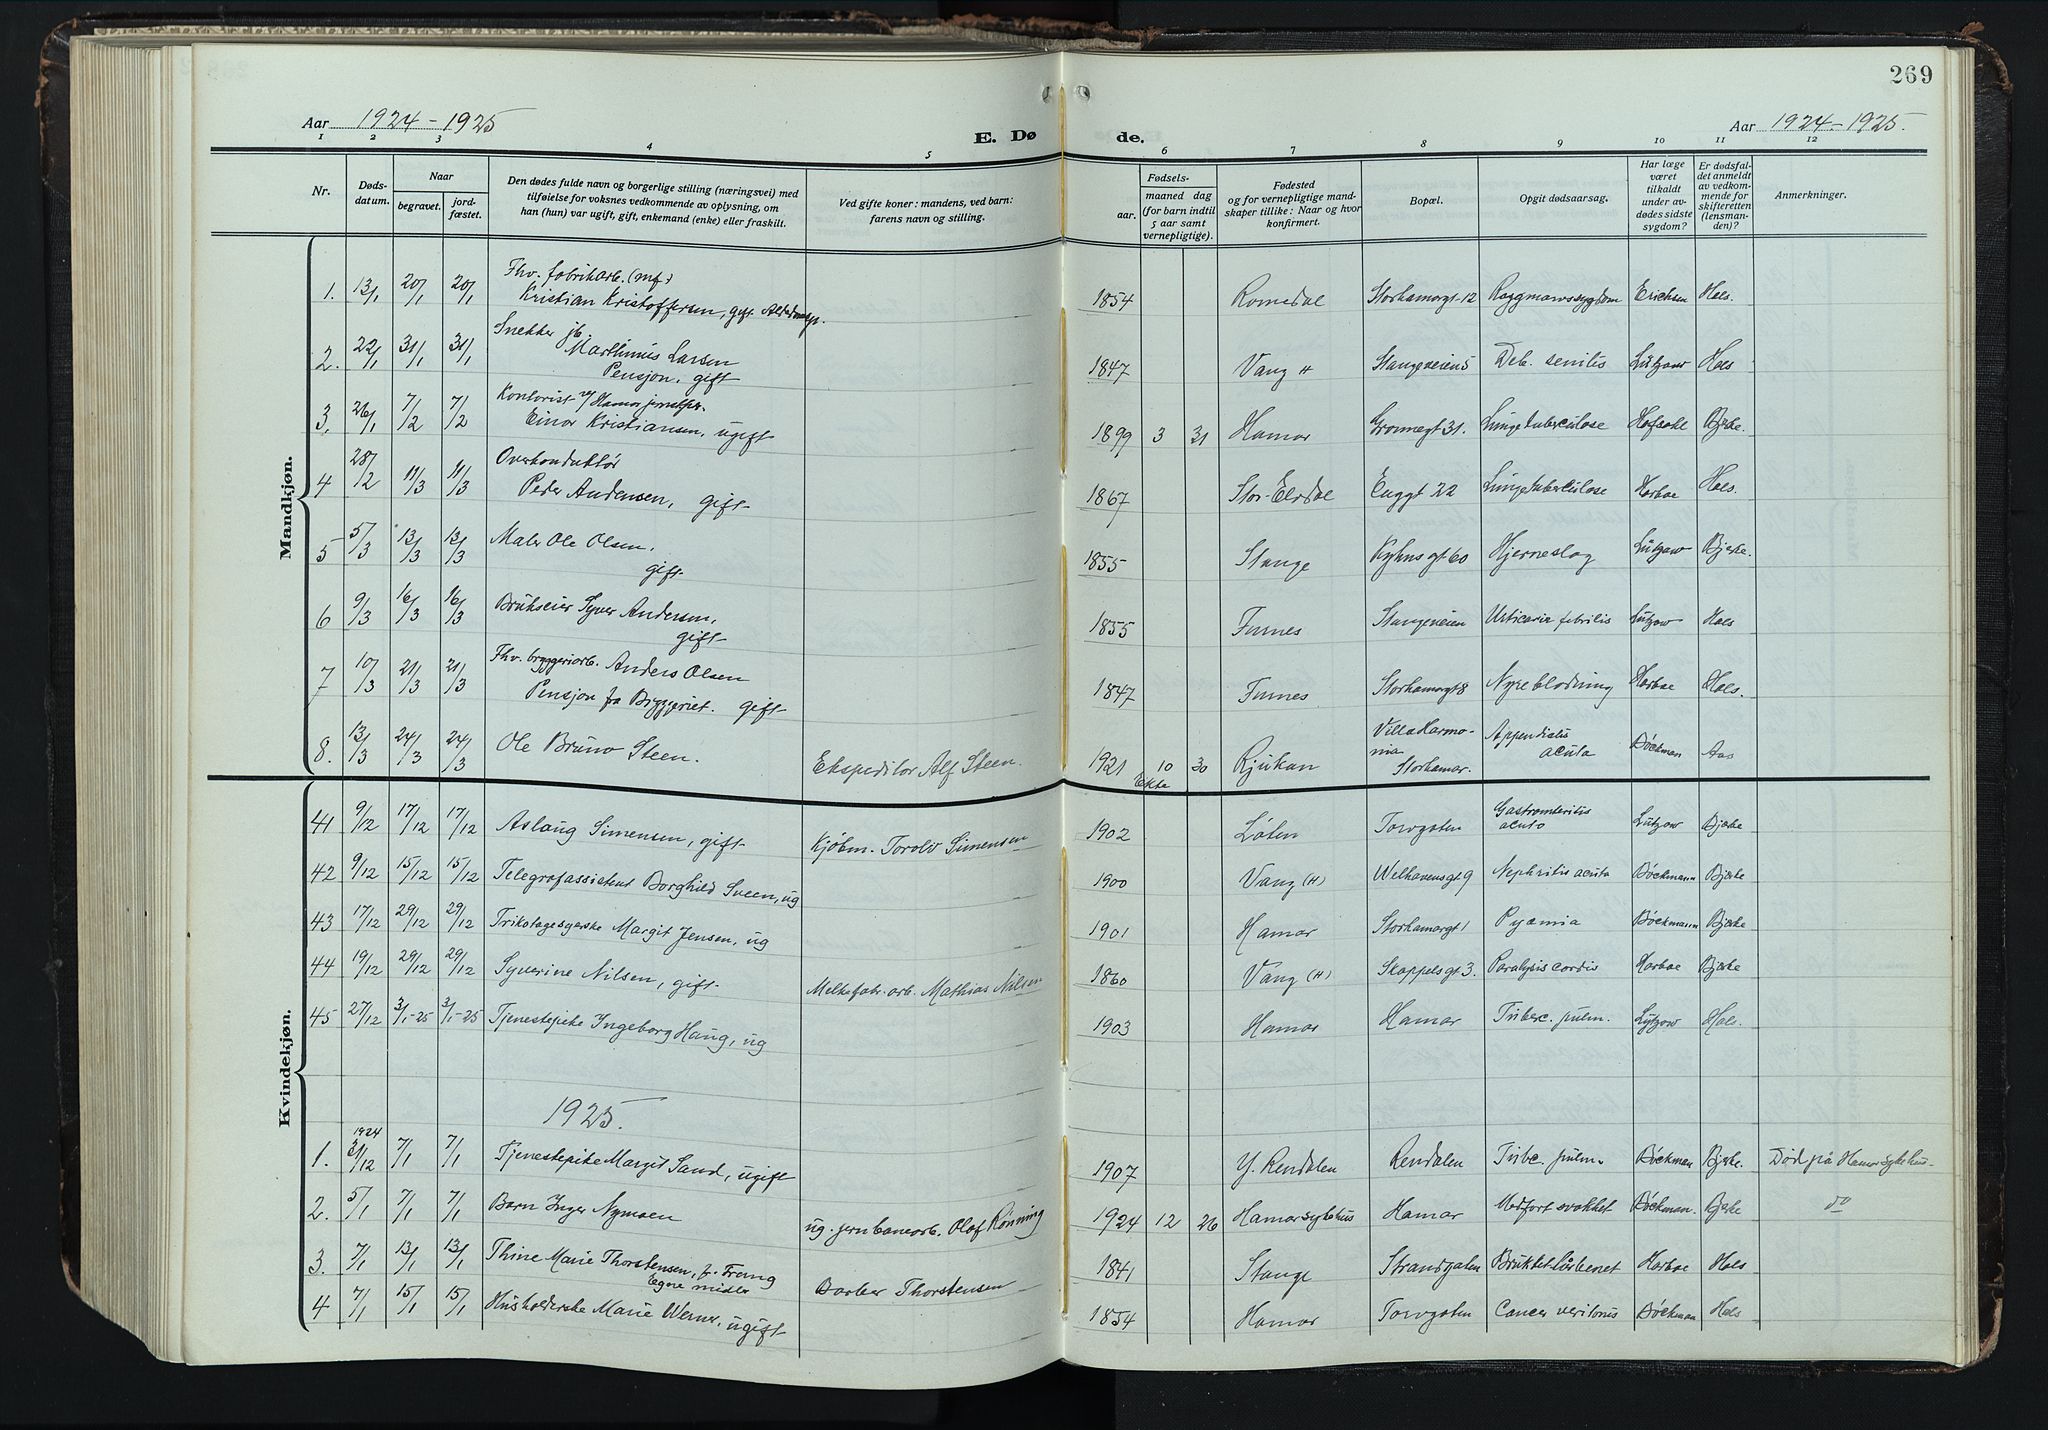 269
Aar 1924-1925
E. Dø de.
Aar 1924-1925.
1 2 3 4 5 6 7 8 9 10 11 12
Nr.
Døds-
datum.
Naar
begravet.
jord-
fæstet.
Den dødes fulde navn og borgerlige stilling (næringsvei) med
tilføielse for voksnes vedkommende av oplysning, om
han (hun) var ugift, gift, enkemand (enke) eller fraskilt.
Ved gifte koner: mandens, ved barn:
farens navn og stilling.
Fødsels-
aar.
maaned dag
(for barn indtil
5 aar samt
vernepligtige).
Fødested
og for vernepligtige mand-
skaper tillike: Naar og hvor
konfirmert.
Bopæl.
Opgit dødsaarsag.
Har læge
været
tilkaldt
under av-
dødes sidste
sygdom?
Er dødsfal-
det anmeldt
av vedkom-
mende for
skifteretten
(lensman-
den)?
Anmerkninger.
Mandkjøn.
Fhv. fabrikarb. (mf.)
1. 13/1 20/1 20/1 Kristian Kristoffersen, gift. 1854 Romedal Storhamargt 12 Erichsen Hols.
Snekker
2. 22/1 31/1 31/1 Marthinius Larsen 1847 Vang H Stangeveien 5 Deb. senilis Lützow Hols
Pensjon. gift
Kontorist v/ Hamar
3. 26/1 7/2 7/2 Einar Kristiansen, ugift 1899 3 31 Hamar Grønnegt 31. Lungetuberculose Bjerke.
Overkonduktør
4 28/2 11/3 11/3 Peder Andersen, gift 1867 Stor-Elvdal Enggt 22 Lungetuberculose Harboe Hols.
5 5/3 13/3 13/3 Maler Ole Olsen. 1855 Stange Kyhns gt 60 Hjerneslag Lützow Bjerke.
gift
6 9/3 16/3 16/3 Brukseier Syver Andersen, 1855 Furnes Stangeveien Urticaria febrilis Lützow Hols
gift
7 10/3 21/3 21/3 Fhv. bryggeriarb. Anders Olsen 1847 Furnes Storhamargt 8 Nyreblødning Harboe Hols.
Pensjon fra Bryggeriet. gift
8. 13/3 24/3 24/3 Ole Bruno Steen. Ekspeditør Alf Steen. 1921 10 30 Rjukan Villa Harmo-
nia
Storhamar. Appendicitis
acuta Bøckman Aas
Ekte
Kvindekjøn.
41 9/12 17/12 17/12 Aslaug Simensen, gift Kjøbm. Torolv Simensen 1902 Løten Torvgaten Gastroenteritis
acuta Lützow Bjerke
42 9/12 15/12 15/12 Telegrafassistent Borghild Sveen, ug 1900 Vang (H) Welhavensgt 9 Nephritis acuta Bøckmann Bjerke
43 17/12 29/12 29/12 Trikotagesyerske Margit Jensen, ug 1901 Hamar Storhamargt 1 Pyæmia Bøckmann Bjerke
44 19/12 29/12 29/12 Syverine Nilsen, gift Melkefabr. arb. Mathias Nilsen 1860 Vang (H) Skappelsgt 3. Paralysis cordis Harboe Bjerke
45 27/12 3/1-25 3/1-25 Tjenestepike Ingeborg Haug, ug 1903 Hamar Hamar Tuberc. pulm. Lützow Hols.
1925.
1924
1. 31/12 7/1 7/1 Tjenestepike Margit Sand, ugift 1907 Y. Rendalen Rendalen Tubc. pulm. Bøckman Bjerke. Død på Hamar sykehus
2. 5/1 7/1 7/1 Barn Inger Nymoen ug. jernbanearb. Olaf Rønning 1924 12 26 Hamar sykehus Hamar Medfort svakhet Bøckman. Bjerke do
3. 7/1 13/1 13/1 Thine Marie Thorstensen, f. Frang Barber Thorstensen 1841 Stange Strandgaten Brukket lårbenet Harboe Hols
Egne midler
4 7/1 15/1 15/1 Husholderske Marie Werner, ugift 1854 Hamar Torvgaten Cancer Bøckman Hols